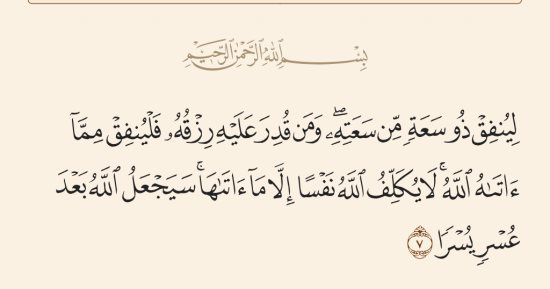 بِسْمِ ٱللَّهِ ٱلرَّحْمَٰنِ ٱلرَّحِيمِ
لِيُنفِقْ ذُو سَعَةٍ مِّن سَعَتِهِۦۖ وَمَن قُدِرَ عَلَيْهِ رِزْقُهُۥ فَلْيُنفِقْ مِمَّآ
ءَاتَىٰهُ ٱللَّهُۚ لَا يُكَلِّفُ ٱللَّهُ نَفْسًا إِلَّا مَآ ءَاتَىٰهَاۚ سَيَجْعَلُ ٱللَّهُ بَعْدَ
عُسْرٍ يُسْرًا ٧